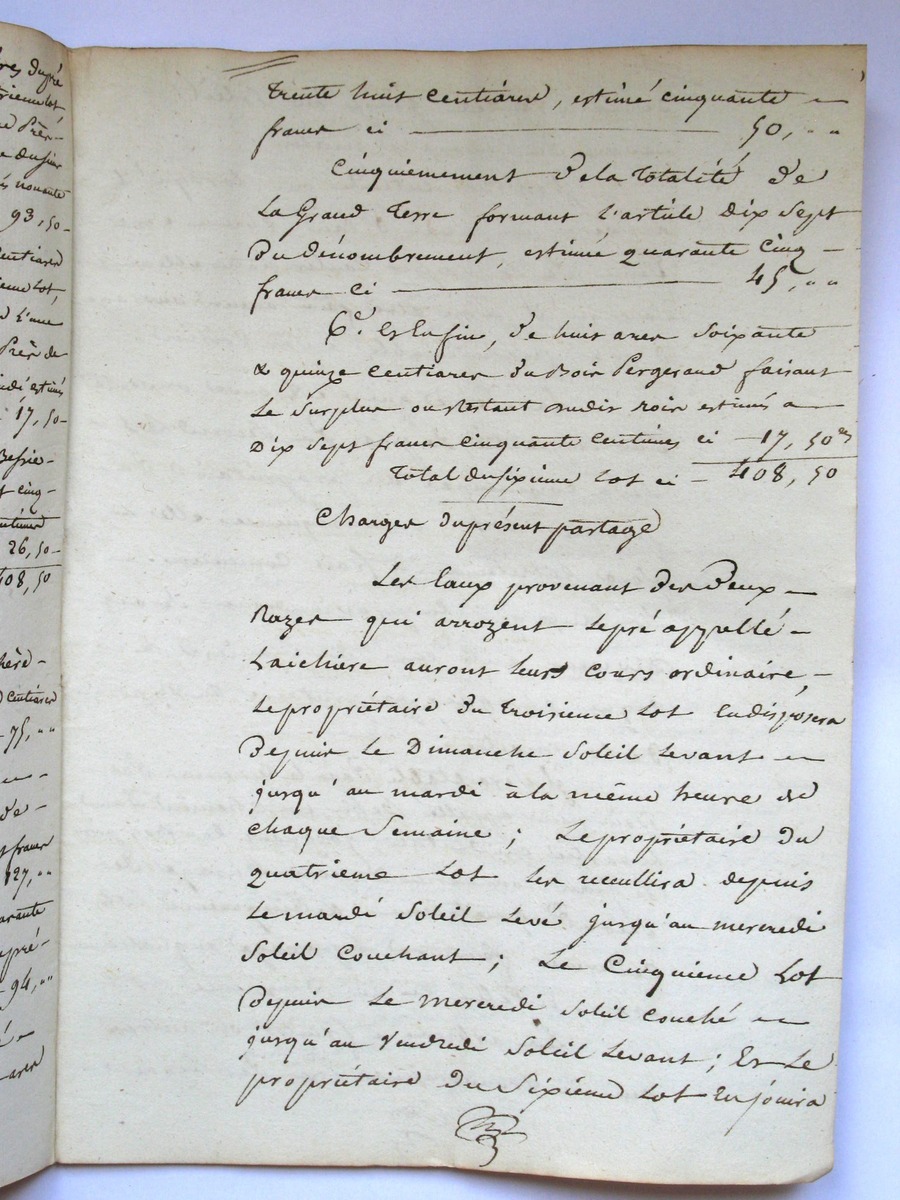 res du pré
93,50-
17,50-
26,50-
408,50
centiares
- 75, ""
de -
francs
127, ""
94, ""
trente huit centiares, estimé cinquante -
francs ci — 50, ""
Cinquiemement de la totalité de
La Grand Terre formant l'article dix sept
du dénombrement, estimée quarante cinq -
francs ci — 45, ""
6.° Et enfin, de huit ares soixante
& quinze centiares du Bois Pergeraud faisant
le surplus ou restant dudit bois estimés a -
dix sept francs cinquante centimes ci - 17, 50 es
Total du sixieme lot ci - 408, 50
Charges du présent partage
Les Eaux provenant des deux -
Razes qui arrozent le pré appellé -
Laichiere auront leurs cours ordinaire, -
le propriétaire du troisieme lot en disposera
depuis le dimanche soleil levant -
jusqu'au mardi à la même heure de
chaque semaine ; le propriétaire du
quatrieme lot les receullira depuis
le mardi soleil levé jusqu'au mercredi
soleil couchant ; Le Cinquieme lot
depuis le mercredi soleil couché -
jusqu'au vendredi soleil levant ; Et le
propriétaire du sixieme lot en jouira